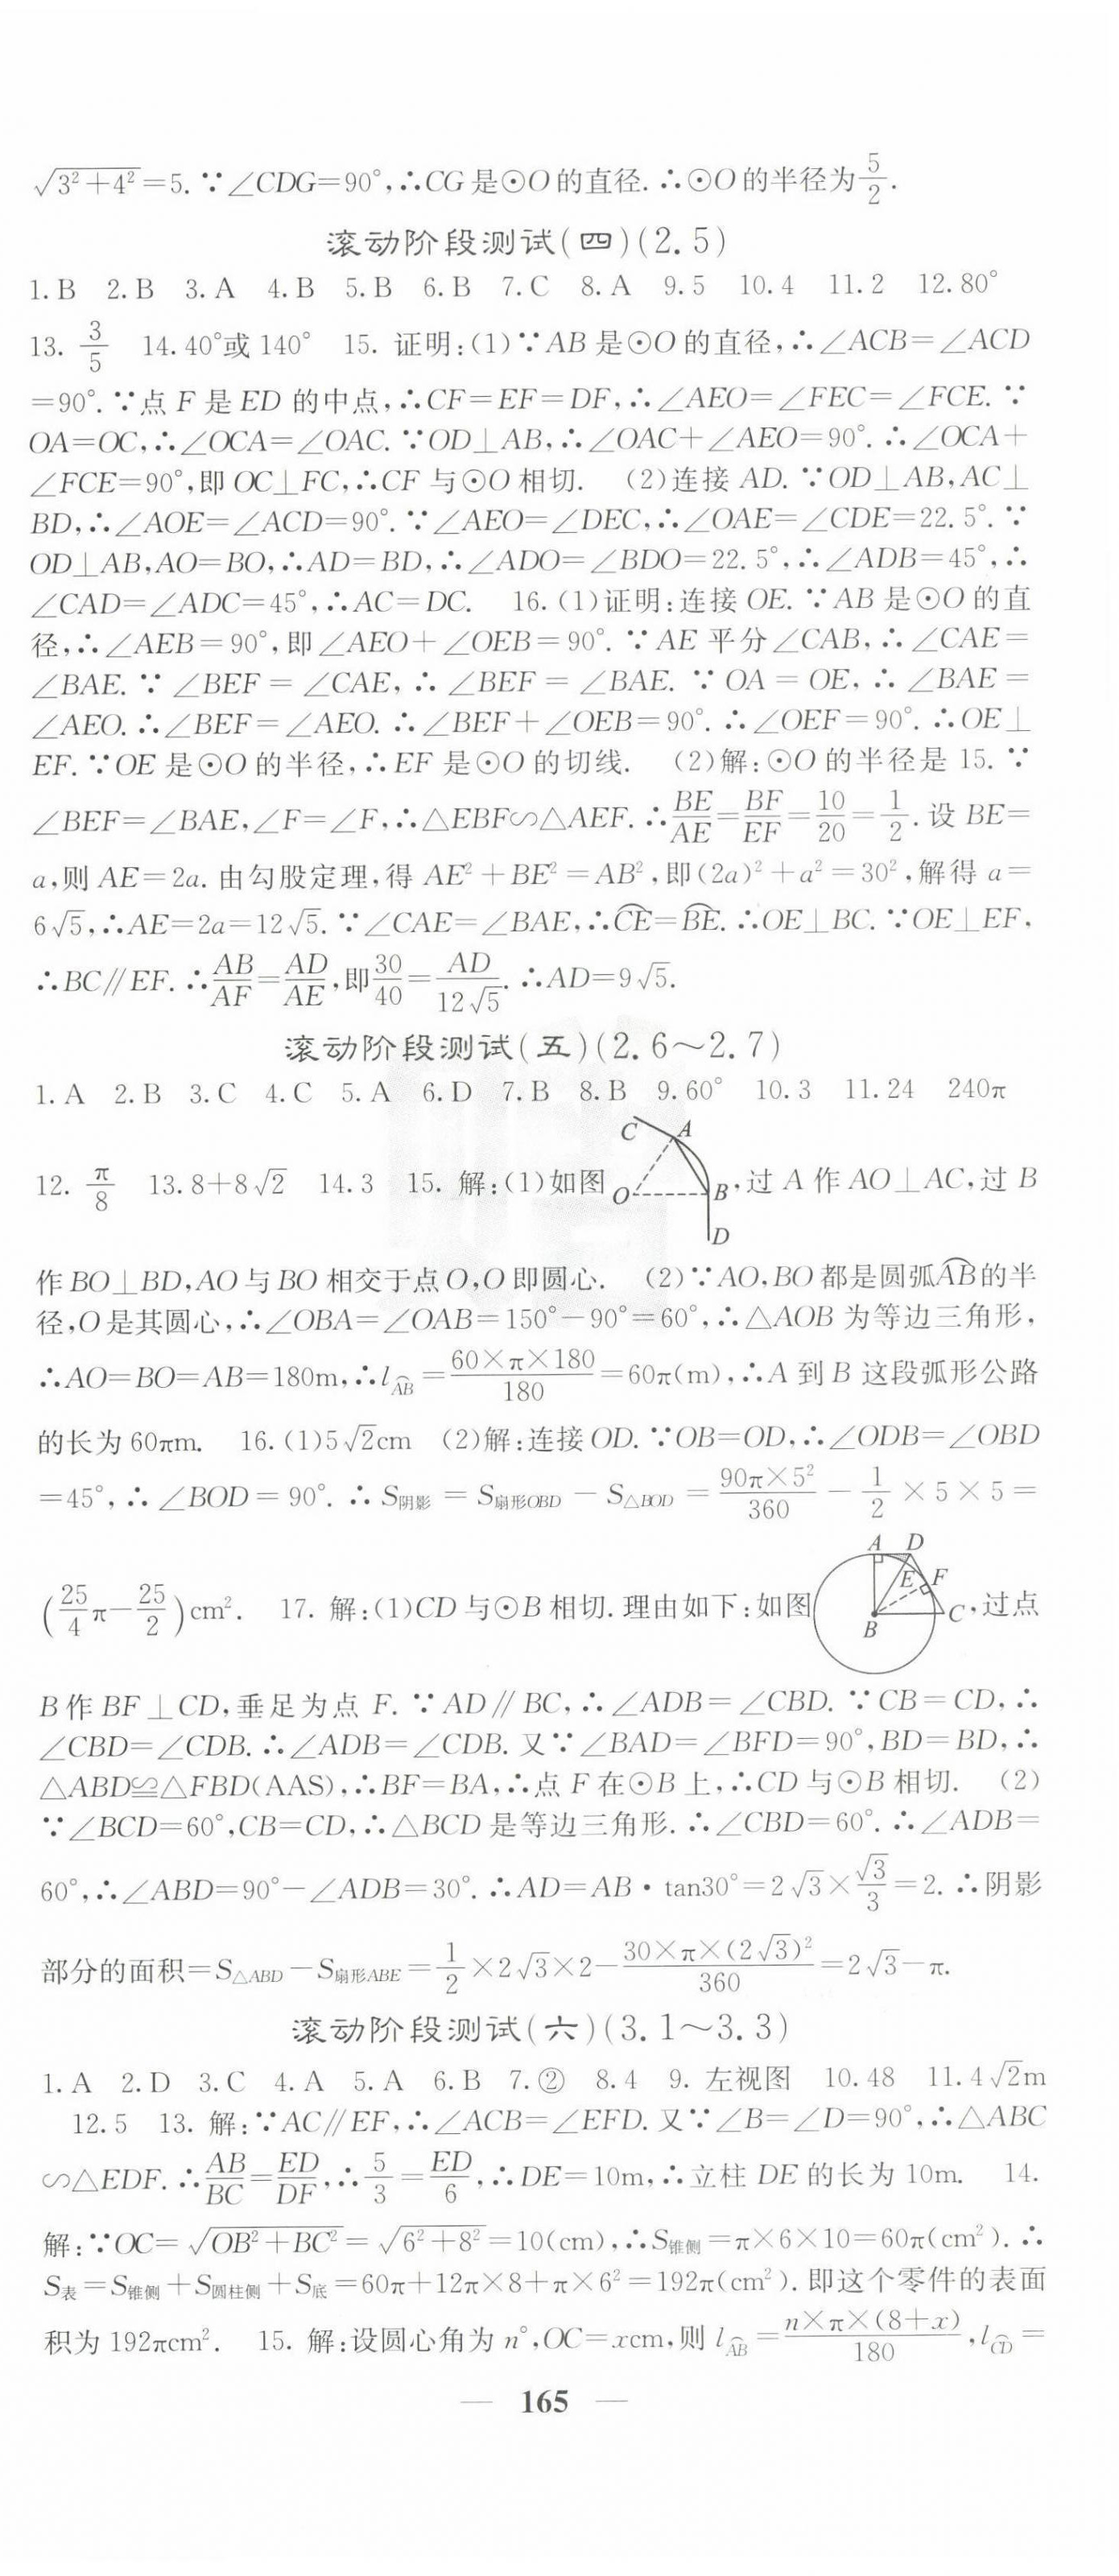 √(3²+4²)=5.∵∠CDG=90°,∴CG是⊙O的直径.∴⊙O的半径为5/2.
滚动阶段测试(四)(2.5)
1.B 2.B 3.A 4.B 5.B 6.B 7.C 8.A 9.5 10.4 11.2 12.80°
13. 3/5 14.40°或140° 15. 证明:(1)∵AB是⊙O的直径,∴∠ACB=∠ACD
=90°.∵点F是ED的中点,∴CF=EF=DF,∴∠AEO=∠FEC=∠FCE.∵
OA=OC,∴∠OCA=∠OAC.∵OD⊥AB,∴∠OAC+∠AEO=90°.∴∠OCA+
∠FCE=90°,即OC⊥FC,∴CF与⊙O相切. (2)连接AD.∵OD⊥AB,AC⊥
BD,∴∠AOE=∠ACD=90°.∵∠AEO=∠DEC,∴∠OAE=∠CDE=22.5°.∵
OD⊥AB,AO=BO,∴AD=BD,∴∠ADO=∠BDO=22.5°,∴∠ADB=45°,∴
∠CAD=∠ADC=45°,∴AC=DC. 16.(1)证明:连接OE.∵AB是⊙O的直
径,∴∠AEB=90°,即∠AEO+∠OEB=90°.∵AE平分∠CAB,∴∠CAE=
∠BAE.∵∠BEF=∠CAE,∴∠BEF=∠BAE.∵OA=OE,∴∠BAE=
∠AEO.∴∠BEF=∠AEO.∴∠BEF+∠OEB=90°.∴∠OEF=90°.∴OE⊥
EF.∵OE是⊙O的半径,∴EF是⊙O的切线. (2)解:⊙O的半径是15.∵
∠BEF=∠BAE,∠F=∠F,∴△EBF∽△AEF.∴BE/AE=BF/EF=10/20=1/2.设BE=
a,则AE=2a.由勾股定理,得AE²+BE²=AB²,即(2a)²+a²=30²,解得a=
6√5,∴AE=2a=12√5.∵∠CAE=∠BAE,∴⌒CE=⌒BE.∴OE⊥BC.∵OE⊥EF,
∴BC∥EF.∴AB/AF=AD/AE,即30/40=AD/(12√5).∴AD=9√5.
滚动阶段测试(五)(2.6~2.7)
1.A 2.B 3.C 4.C 5.A 6.D 7.B 8.B 9.60° 10.3 11.24 240π
12. π/8 13.8+8√2 14.3 15. 解:(1)如图 C A O B D ,过A作AO⊥AC,过B
作BO⊥BD,AO与BO相交于点O,O即圆心. (2)∵AO,BO都是圆弧⌒AB的半
径,O是其圆心,∴∠OBA=∠OAB=150°-90°=60°,∴△AOB为等边三角形,
∴AO=BO=AB=180m,∴l⌒AB=(60×π×180)/180=60π(m),∴A到B这段弧形公路
的长为60πm. 16.(1)5√2cm (2)解:连接OD.∵OB=OD,∴∠ODB=∠OBD
=45°,∴∠BOD=90°.∴S阴影=S扇形OBD-S△BOD=(90π×5²)/360-1/2×5×5=
(25/4π-25/2)cm². 17. 解:(1)CD与⊙B相切.理由如下:如图 A D E F B C ,过点
B作BF⊥CD,垂足为点F.∵AD∥BC,∴∠ADB=∠CBD.∵CB=CD,∴
∠CBD=∠CDB.∴∠ADB=∠CDB.又∵∠BAD=∠BFD=90°,BD=BD,∴
△ABD≌△FBD(AAS),∴BF=BA,∴点F在⊙B上,∴CD与⊙B相切. (2)
∵∠BCD=60°,CB=CD,∴△BCD是等边三角形.∴∠CBD=60°.∴∠ADB=
60°,∴∠ABD=90°-∠ADB=30°.∴AD=AB·tan30°=2√3×√3/3=2.∴阴影
部分的面积=S△ABD-S扇形ABE=1/2×2√3×2-(30×π×(2√3)²)/360=2√3-π.
滚动阶段测试(六)(3.1~3.3)
1.A 2.D 3.C 4.A 5.A 6.B 7.② 8.4 9. 左视图 10.48 11.4√2m
12.5 13. 解:∵AC∥EF,∴∠ACB=∠EFD.又∵∠B=∠D=90°,∴△ABC
∽△EDF.∴AB/BC=ED/DF,∴5/3=ED/6,∴DE=10m,∴立柱DE的长为10m. 14.
解:∵OC=√(OB²+BC²)=√(6²+8²)=10(cm),∴S锥侧=π×6×10=60π(cm²).∴
S表=S锥侧+S圆柱侧+S底=60π+12π×8+π×6²=192π(cm²).即这个零件的表面
积为192πcm². 15. 解:设圆心角为n°,OC=xcm,则l⌒AB=(n×π×(8+x))/180,l⌒CD=
— 165 —